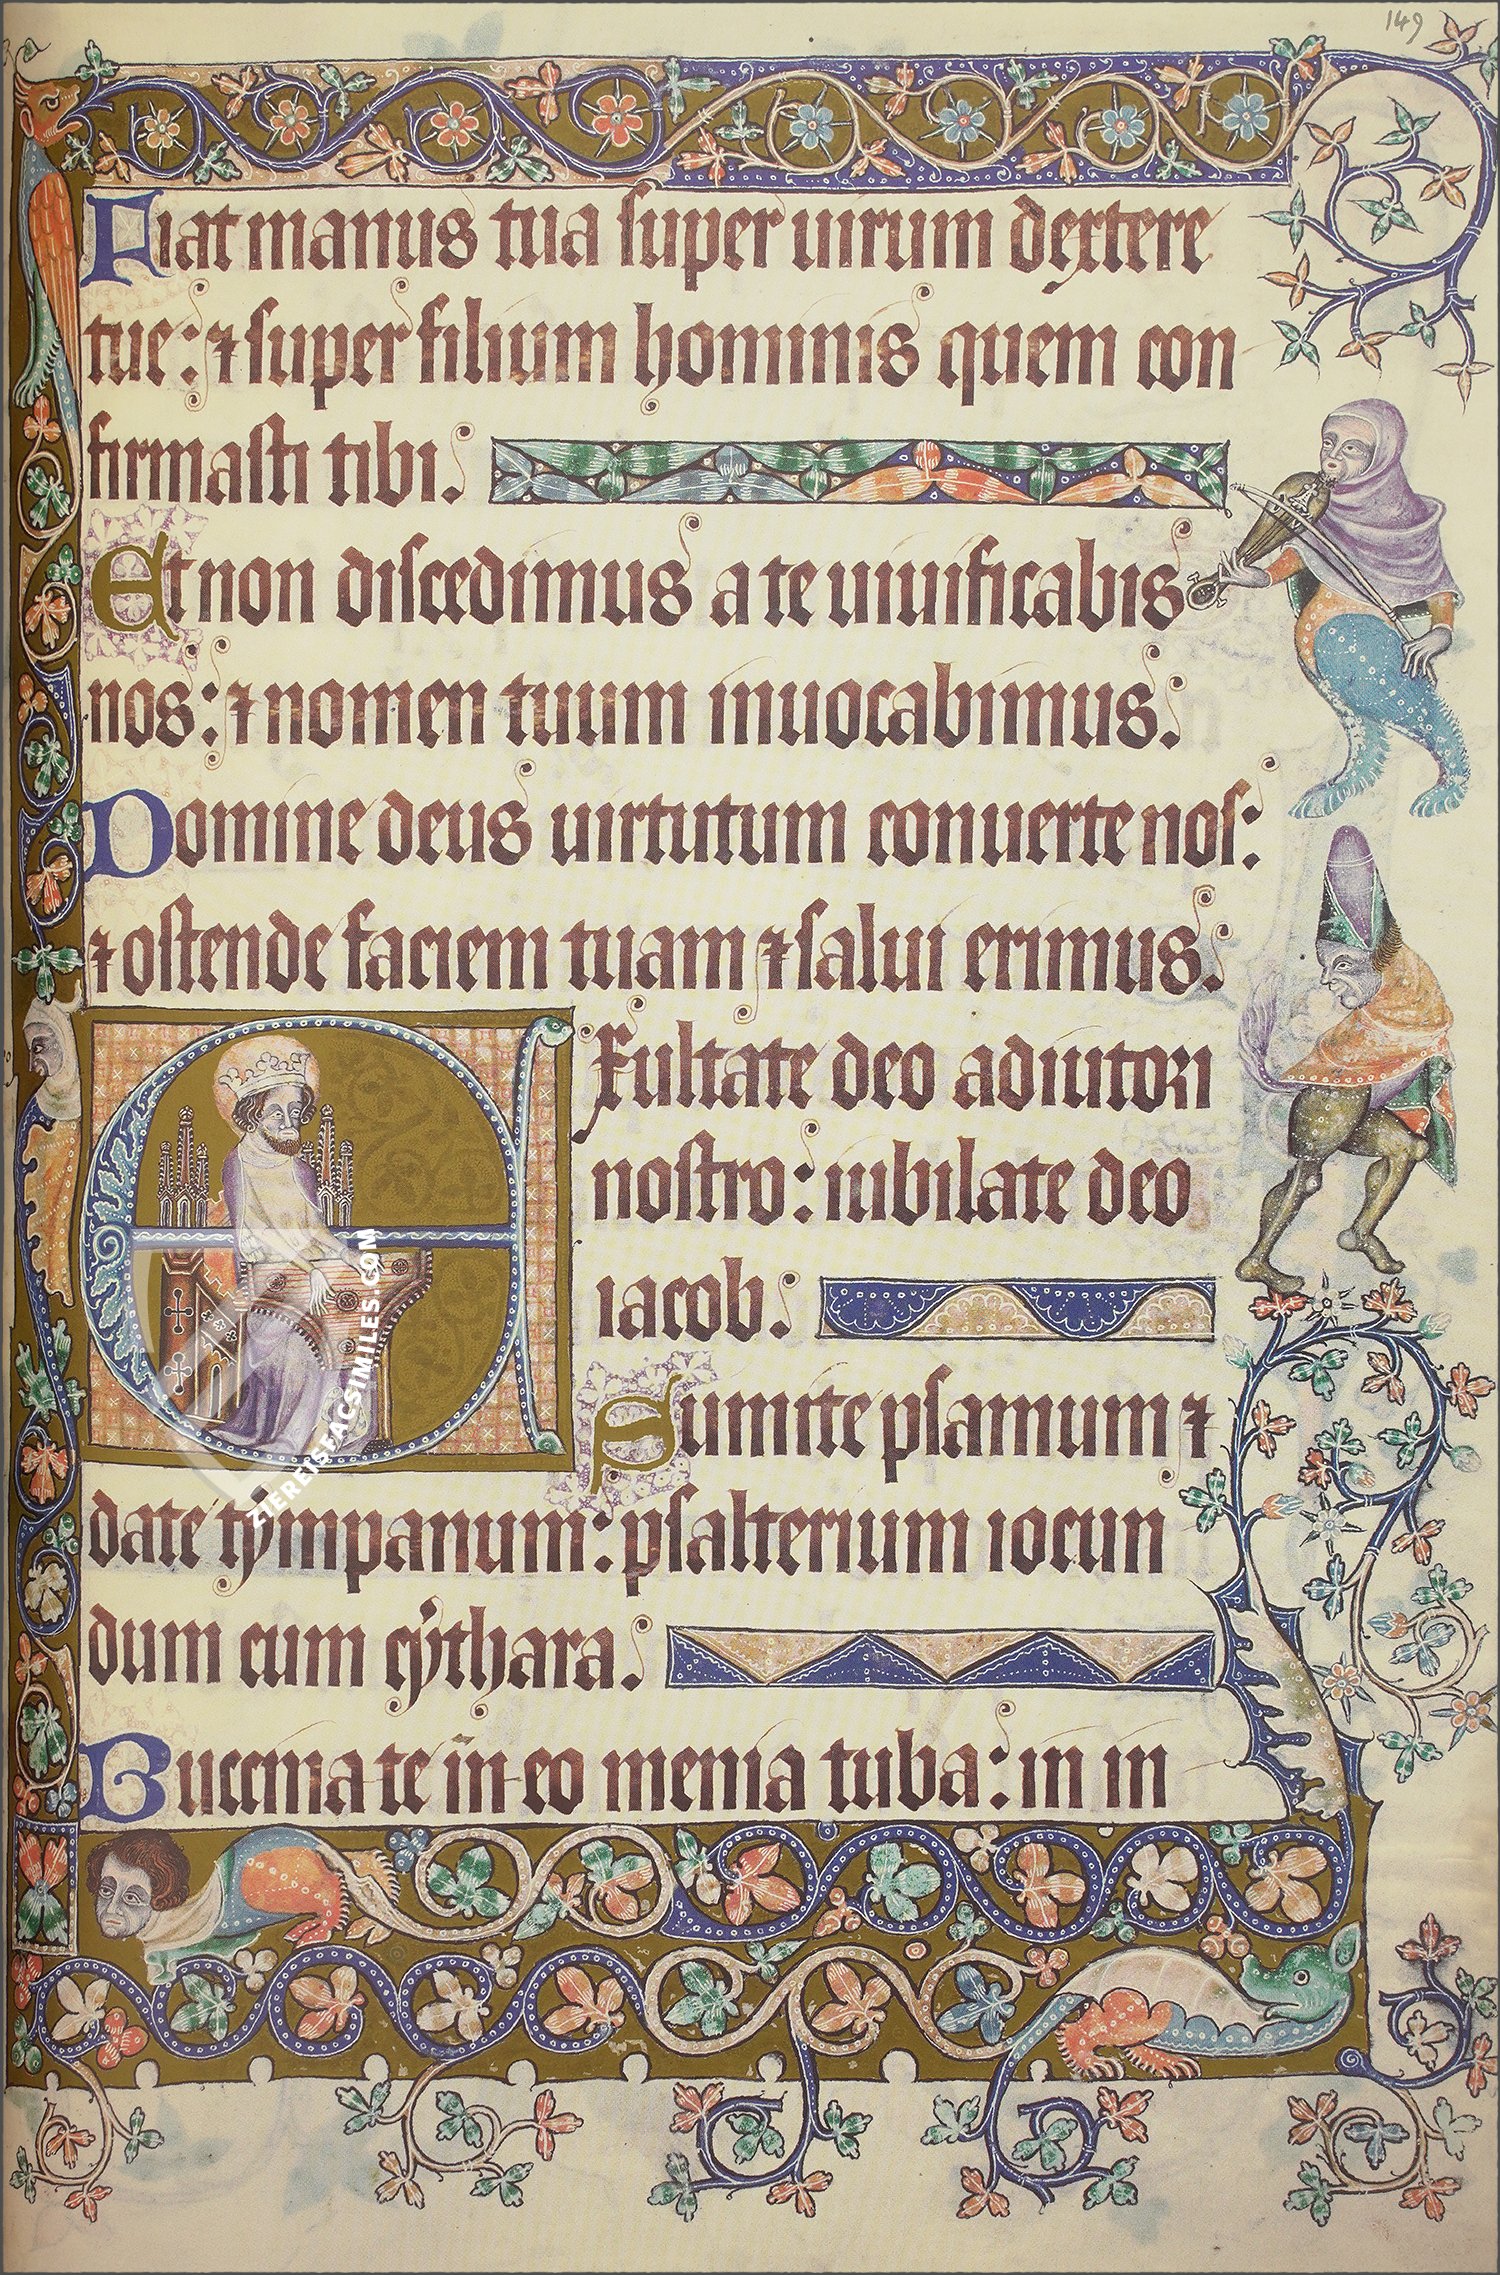 149
Fiat manus tua super uirum dextere
tue: ⁊ super filium hominis quem con
firmasti tibi.
Et non discedimus a te uiuificabis
nos: ⁊ nomen tuum inuocabimus.
Domine deus uirtutum conuerte nos:
⁊ ostende faciem tuam ⁊ salui erimus.
Exultate deo adiutori
nostro: iubilate deo
iacob.
Sumite psamum ⁊
date tympanum: psalterium iocun
dum cum cythara.
Buccinate in eo menia tuba: in in
ZIEREISFACSIMILES.COM